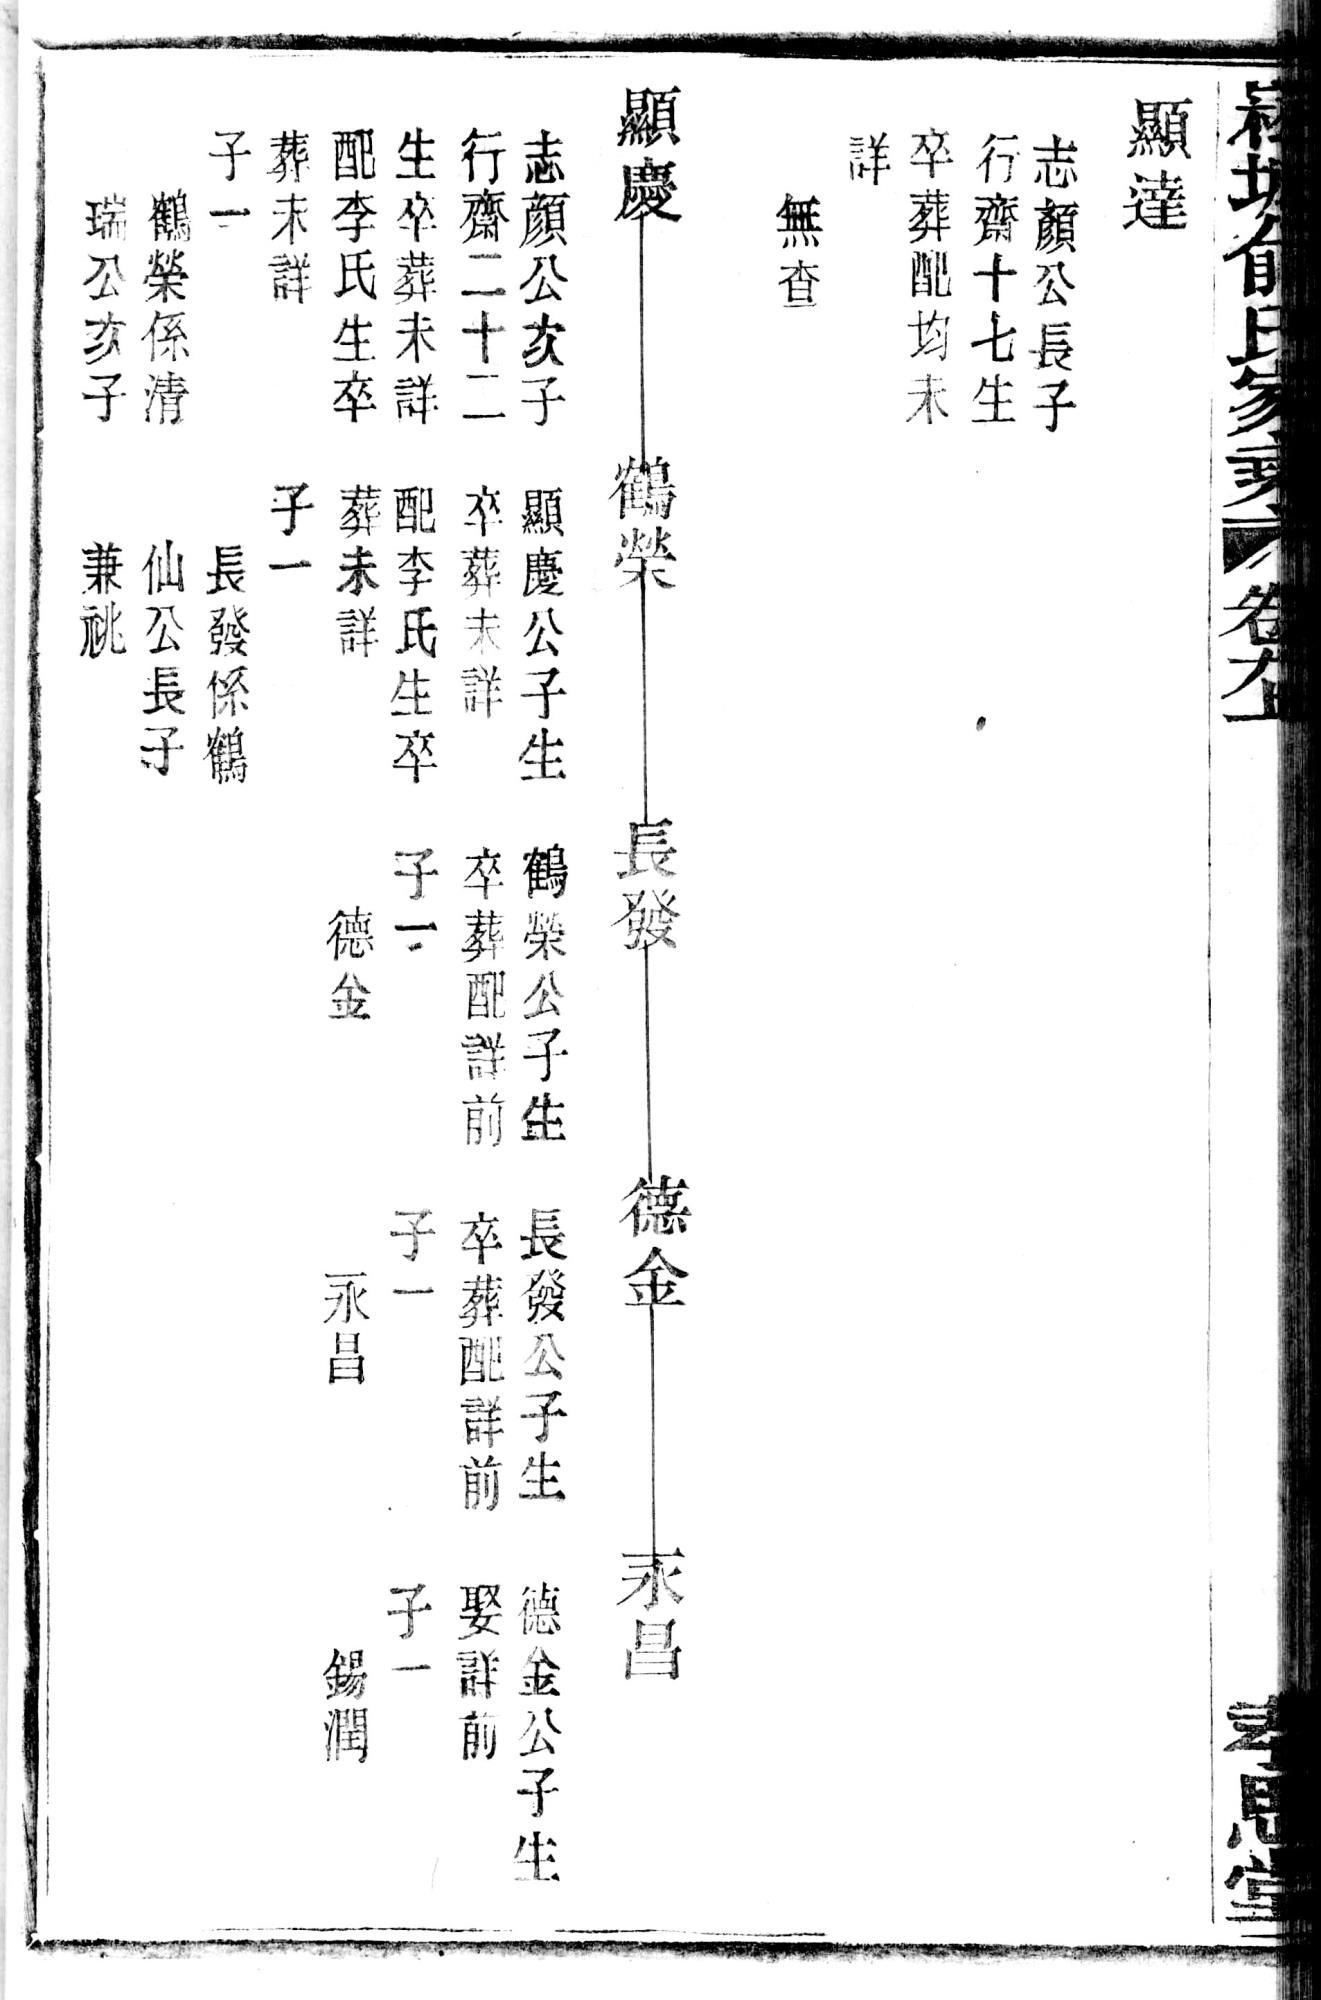 氏家乘
卷九上
孝思堂
顯達
志顏公長子
行齋十七生
卒葬配均未
詳
無查
顯慶
志顏公次子
行齋二十二
生卒葬未詳
配李氏生卒
葬未詳
子一
鶴榮係清
瑞公次子
鶴榮
顯慶公子生
卒葬未詳
配李氏生卒
葬未詳
子一
長發係鶴
仙公長子
兼祧
長發
鶴榮公子生
卒葬配詳前
子一
德金
德金
長發公子生
卒葬配詳前
子一
永昌
永昌
德金公子生
娶詳前
子一
錫潤